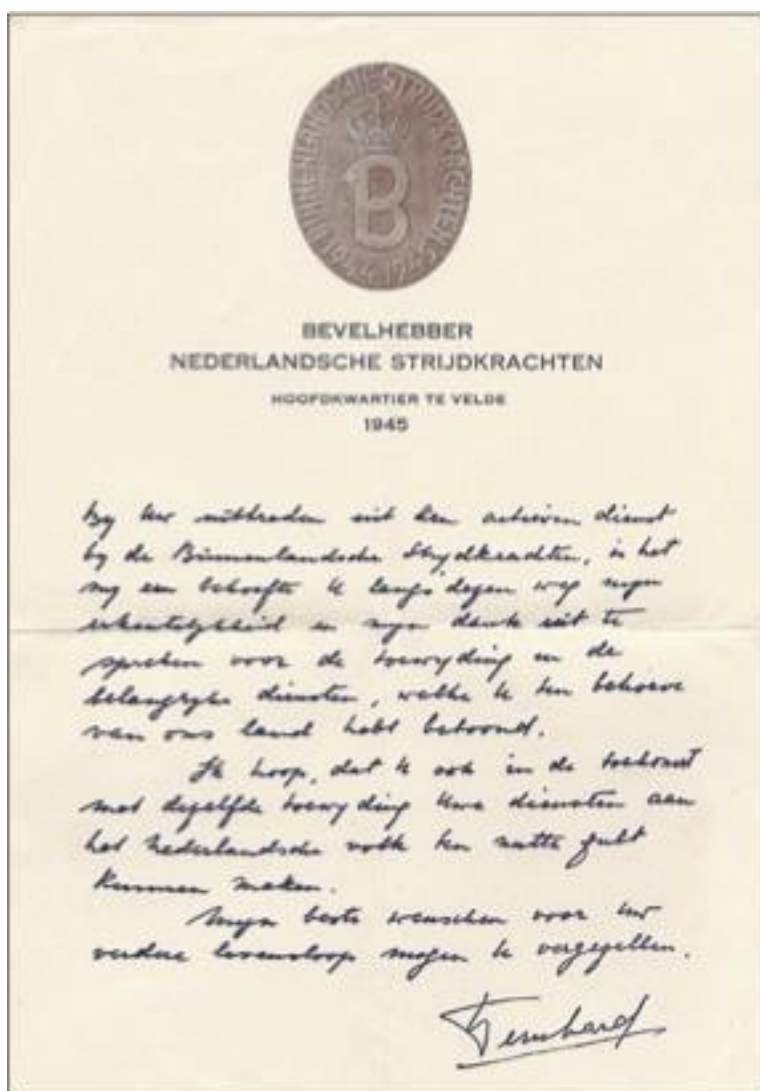 BINNENLANDSCHE STRIJDKRACHTEN
B
1944 1945
BEVELHEBBER
NEDERLANDSCHE STRIJDKRACHTEN
HOOFDKWARTIER TE VELDE
1945
By Uw uittreden uit den actieven dienst
by de Binnenlandsche Strydkrachten, is het
my een behoefte U langs dezen weg myn
erkentelykheid en myn dank uit te
spreken voor de toewyding en de
belangryke diensten, welke U ten behoeve
van ons land hebt betoond.
Ik hoop, dat U ook in de toekomst
met dezelfde toewyding Uwe diensten aan
het Nederlandsche volk ten nutte zult
kunnen maken.
Myn beste wenschen voor Uw
verdere levensloop mogen U vergezellen.
Bernhard